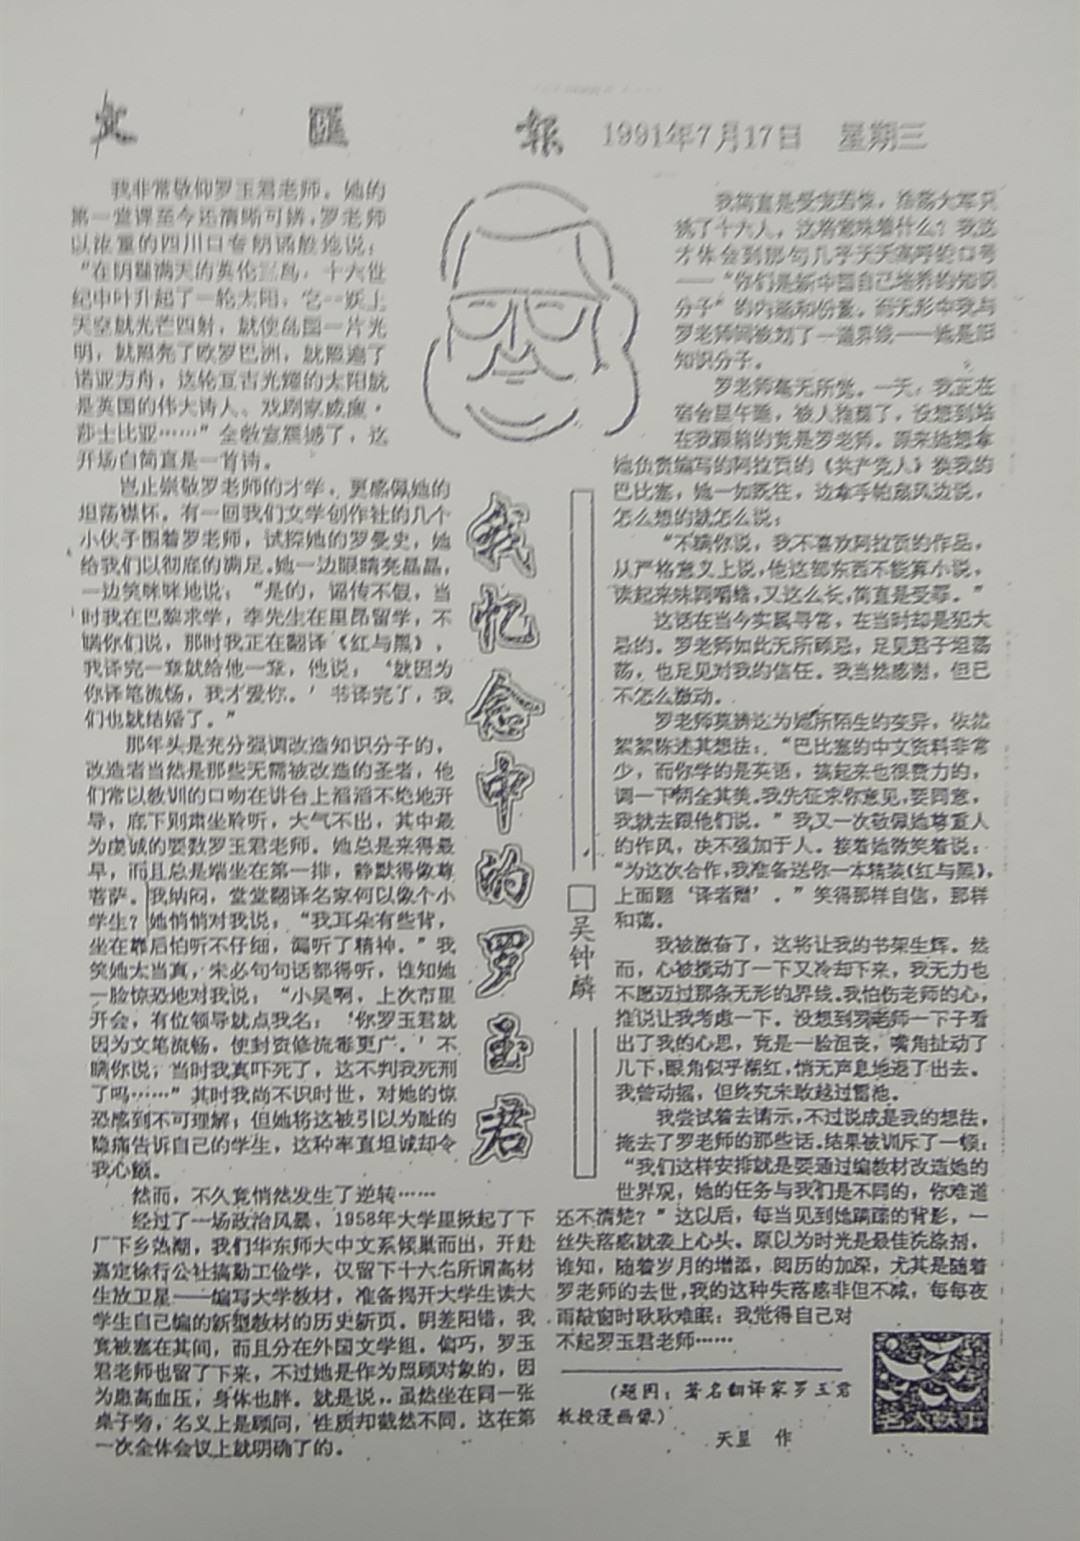 文匯报 1991年7月17日 星期三
我忆念中的罗玉君
□吴钟麟
我非常敬仰罗玉君老师。她的
第一堂课至今还清晰可辨，罗老师
以浓重的四川口音朗诵般地说：
“在阴霾满天的英伦三岛，十六世
纪中叶升起了一轮太阳，它一跃上
天空就光芒四射，就使岛国一片光
明，就照亮了欧罗巴洲，就照遍了
诺亚方舟，这轮亘古光耀的太阳就
是英国的伟大诗人、戏剧家威廉·
莎士比亚……”全教室震撼了，这
开场白简直是一首诗。
岂止崇敬罗老师的才学，更感佩她的
坦荡襟怀。有一回我们文学创作社的几个
小伙子围着罗老师，试探她的罗曼史，她
给我们以彻底的满足。她一边眼睛亮晶晶，
一边笑眯眯地说：“是的，谣传不假，当
时我在巴黎求学，李先生在里昂留学，不
瞒你们说，那时我正在翻译《红与黑》，
我译完一章就给他一章，他说，‘就因为
你译笔流畅，我才爱你。’书译完了，我
们也就结婚了。”
那年头是充分强调改造知识分子的，
改造者当然是那些无需被改造的圣者，他
们常以教训的口吻在讲台上滔滔不绝地开
导，底下则肃坐聆听，大气不出，其中最
为虔诚的要数罗玉君老师。她总是来得最
早，而且总是端坐在第一排，静默得像尊
菩萨。我纳闷，堂堂翻译名家何以像个小
学生？她悄悄对我说：“我耳朵有些背，
坐在靠后怕听不仔细，漏听了精神。”我
笑她太当真，未必句句话都得听，谁知她
一脸惊恐地对我说：“小吴啊，上次市里
开会，有位领导就点我名：‘你罗玉君就
因为文笔流畅，使封资修流毒更广。’不
瞒你说，当时我真吓死了，这不判我死刑
了吗……”其时我尚不识时世，对她的惊
恐感到不可理解；但她将这被引以为耻的
隐痛告诉自己的学生，这种率直坦诚却令
我心颤。
然而，不久竟悄然发生了逆转……
经过了一场政治风暴，1958年大学里掀起了下
厂下乡热潮，我们华东师大中文系倾巢而出，开赴
嘉定徐行公社搞勤工俭学，仅留下十六名所谓高材
生放卫星——编写大学教材，准备揭开大学生读大
学生自己编的新型教材的历史新页。阴差阳错，我
竟被塞在其间，而且分在外国文学组。偏巧，罗玉
君老师也留了下来，不过她是作为照顾对象的，因
为患高血压，身体也胖。就是说，虽然坐在同一张
桌子旁，名义上是顾问，性质却截然不同。这在第
一次全体会议上就明确了的。
我简直是受宠若惊，浩荡大军只
挑了十六人，这将意味着什么？我这
才体会到那句几乎天天高呼的口号
——“你们是新中国自己培养的知识
分子”的内涵和份量。而无形中我与
罗老师间被划了一道界线——她是旧
知识分子。
罗老师毫无所觉。一天，我正在
宿舍里午睡，被人推醒了，没想到站
在我跟前的竟是罗老师。原来她想拿
她负责编写的阿拉贡的《共产党人》换我的
巴比塞，她一如既往，边拿手帕扇风边说，
怎么想的就怎么说：
“不瞒你说，我不喜欢阿拉贡的作品，
从严格意义上说，他这部东西不能算小说，
读起来味同嚼蜡，又这么长，简直是受罪。”
这话在当今实属寻常，在当时却是犯大
忌的。罗老师如此无所顾忌，足见君子坦荡
荡，也足见对我的信任。我当然感谢，但已
不怎么激动。
罗老师莫辨这为她所陌生的变异，依然
絮絮陈述其想法：“巴比塞的中文资料非常
少，而你学的是英语，搞起来也很费力的，
调一下两全其美。我先征求你意见，要同意，
我就去跟他们说。”我又一次敬佩她尊重人
的作风，决不强加于人。接着她微笑着说：
“为这次合作，我准备送你一本精装《红与黑》，
上面题‘译者赠’。”笑得那样自信，那样
和蔼。
我被激奋了，这将让我的书架生辉。然
而，心被搅动了一下又冷却下来，我无力也
不愿迈过那条无形的界线。我怕伤老师的心，
推说让我考虑一下。没想到罗老师一下子看
出了我的心思，竟是一脸沮丧，嘴角扯动了
几下，眼角似乎潮红，悄无声息地退了出去。
我曾动摇，但终究未敢越过雷池。
我尝试着去请示，不过说成是我的想法，
掩去了罗老师的那些话。结果被训斥了一顿：
“我们这样安排就是要通过编教材改造她的
世界观，她的任务与我们是不同的，你难道
还不清楚？”这以后，每当见到她蹒跚的背影，一
丝失落感就袭上心头。原以为时光是最佳洗涤剂，
谁知，随着岁月的增添，阅历的加深，尤其是随着
罗老师的去世，我的这种失落感非但不减，每每夜
雨敲窗时耿耿难眠：我觉得自己对
不起罗玉君老师……
（题图：著名翻译家罗玉君
教授漫画像）
天呈 作
名人轶事